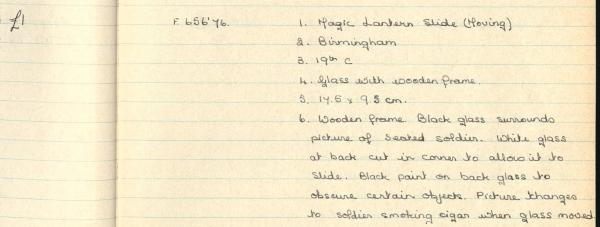 £1
F. 656'76.
1. Magic Lantern Slide (Moving)
2. Birmingham
3. 19th C
4. Glass with wooden frame.
5. 17.5 x 9.5 cm.
6. Wooden frame. Black glass surrounds
picture of seated soldier. White glass
at back cut in corner to allow it to
slide. Black paint on back glass to
obscure certain objects. Picture changes
to soldier smoking cigar when glass moved